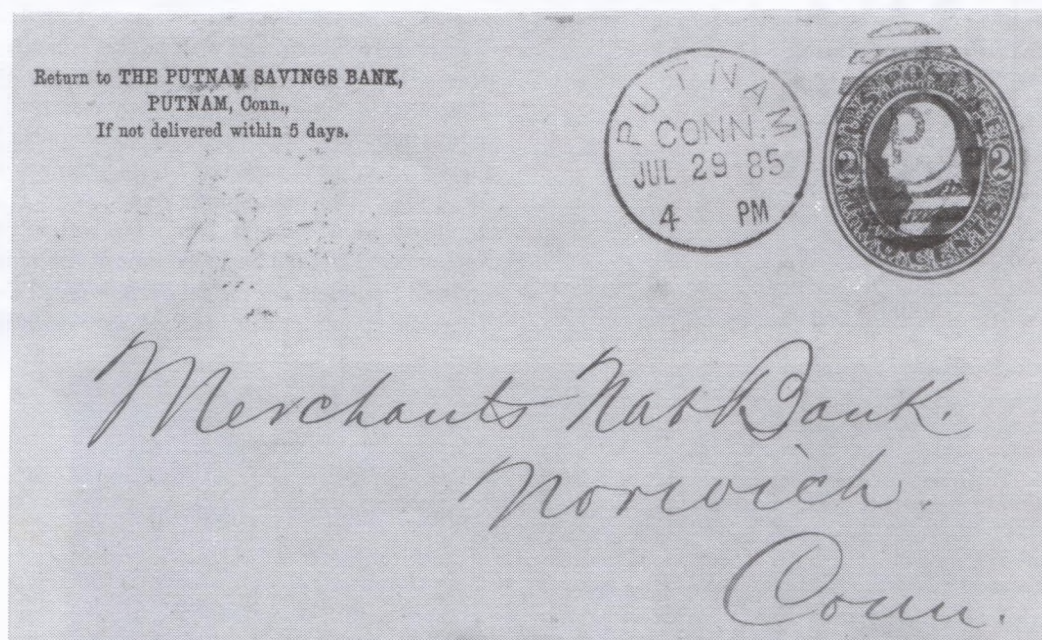 Return to THE PUTNAM SAVINGS BANK,
PUTNAM, Conn.,
If not delivered within 5 days.
PUTNAM
CONN.
JUL 29 85
4 PM
U.S. POSTAGE
P
2 2
TWO CENTS
Merchants Nat Bank.
Norwich.
Conn.